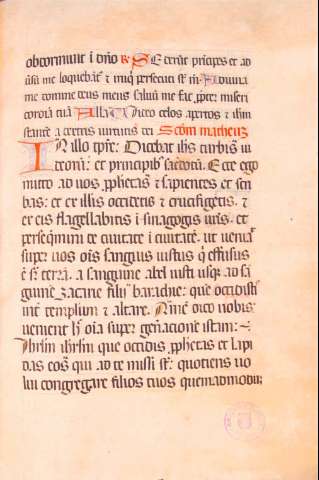 obdormiut i dño R Sederūt pricipes et ad
ūsū me loquebāt˜ et iniq̄ persecuti st̄ m Adiuua
me domine deus meus saluū me fac p̱pter miseri
cordiā tuā Alla Uideo celos apertos et ihm̄
stantē a dextris uirtutis dei Scdm matheuȝ
In illo tp̄re: Dicebat ihs turbis iu
deorū: et principib; sacdotū. Ecce ego
mitto ad uos p̱phetas et sapientes et scri
bas: et ex illis occidetis et crucifigetis: et
ex eis flagellabitis i sinagogis ur̄is. et
persequimī de ciuitate i ciuitatē. ut ueniat
super uos ois sanguis iustus q̇ effusus
ē sr̄ terrā. a sanguine abel iusti usq; ad sā
guinē zacarie filii barachie: que occidisti
int̄ templum et altare. Amē dico uobis:
uenient h̄ oīa super gen̄acione istam:
Ihrlm̄ ihrlm̄ que occidis p̱phetas et lapi
das eos qui ad te missi st̄: quotiens uo
lui congregare filios tuos quemadmodū